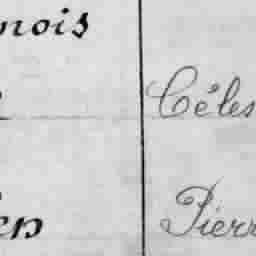 mois
Céles
en
Pierr